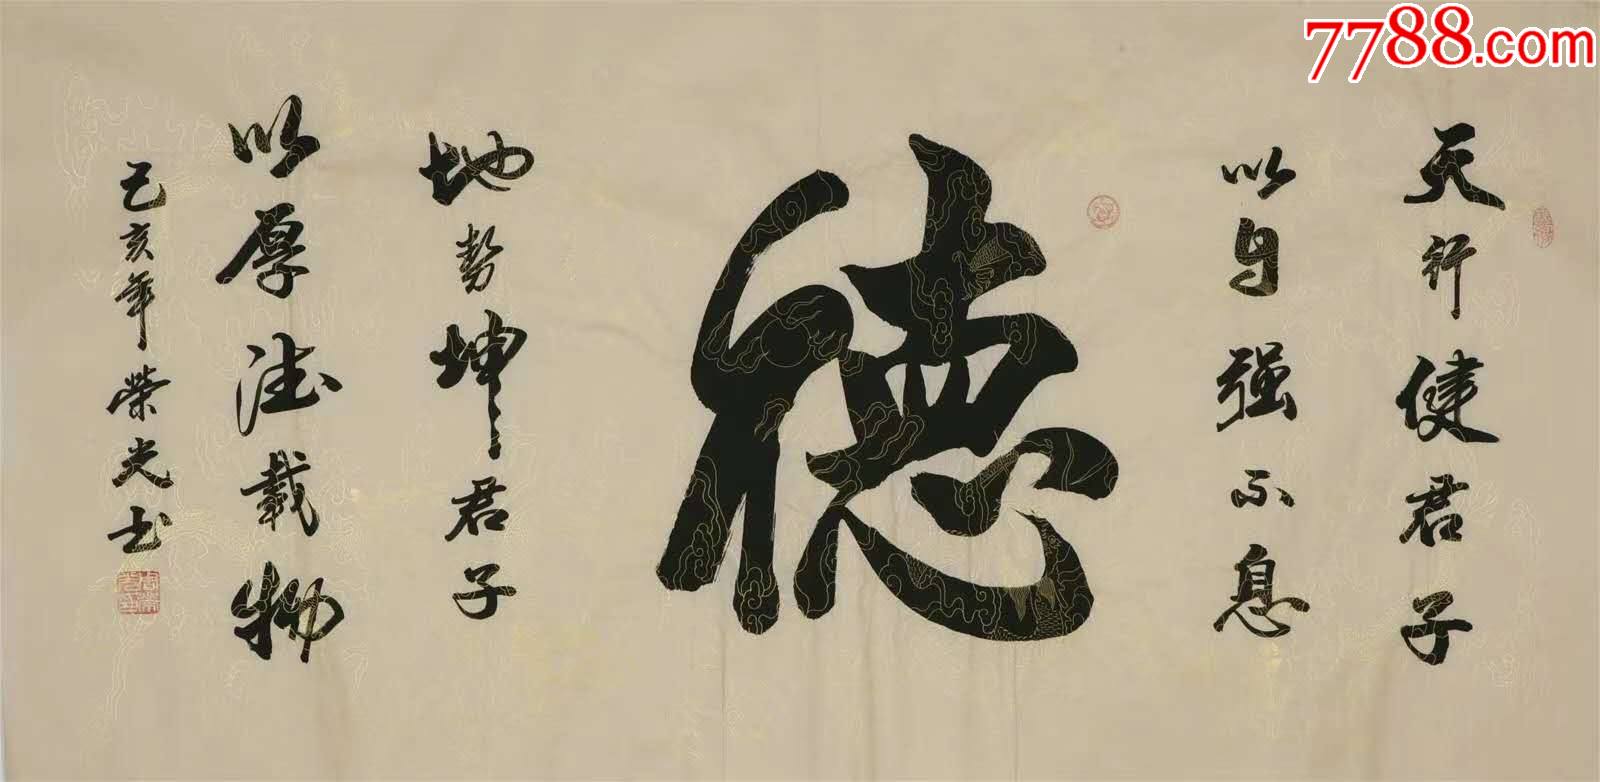 天行健君子
以自强不息
德
地势坤君子
以厚德载物
己亥年荣光书
7788.com